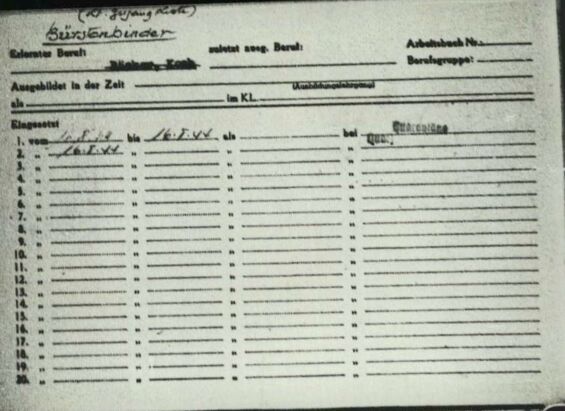 (lt. Zugang Liste)
Bürstenbinder
Erlernter Beruf: Bäcker, Koch zuletzt ausg. Beruf: Arbeitsbuch Nr.:
Berufsgruppe:
Ausgebildet in der Zeit (Ausbildungslehrgang)
als im KL.
Eingesetzt
1. vom bis 16.8.44 als bei Quarantäne
2. " 16.8.44 " " " Quar.
3. " " " "
4. " " " "
5. " " " "
6. " " " "
7. " " " "
8. " " " "
9. " " " "
10. " " " "
11. " " " "
12. " " " "
13. " " " "
14. " " " "
15. " " " "
16. " " " "
17. " " " "
18. " " " "
19. " " " "
20. " " " "